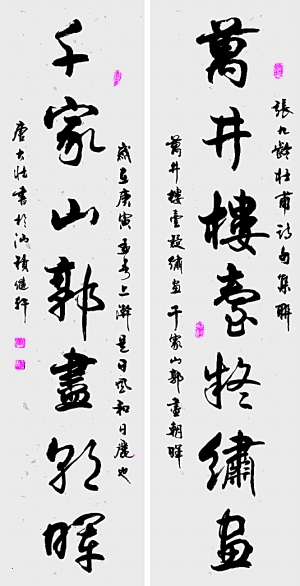 張九齡杜甫詩句集聯
萬井樓臺疑繡畫
萬井樓臺疑繡畫千家山郭盡朝暉
歲在庚寅孟春上澣是日風和日麗也
千家山郭盡朝暉
唐大壯書於汕積健軒